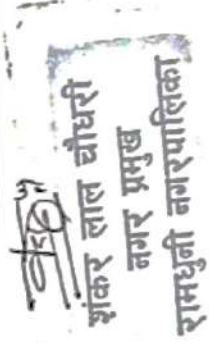 शंकर लाल चौधरी
नगर प्रमुख
रामधुनी नगरपालिका